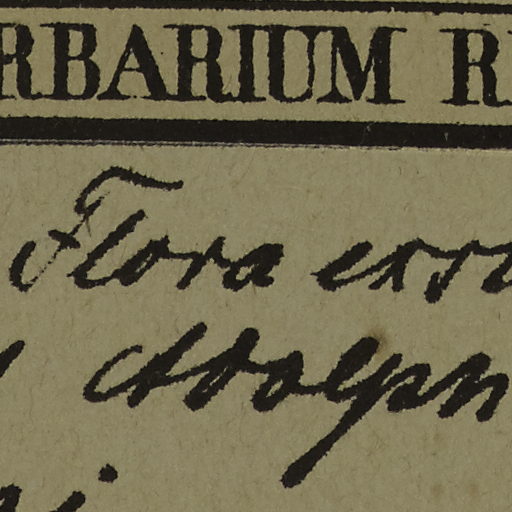 RBARIUM R
Flora exs
Adolph